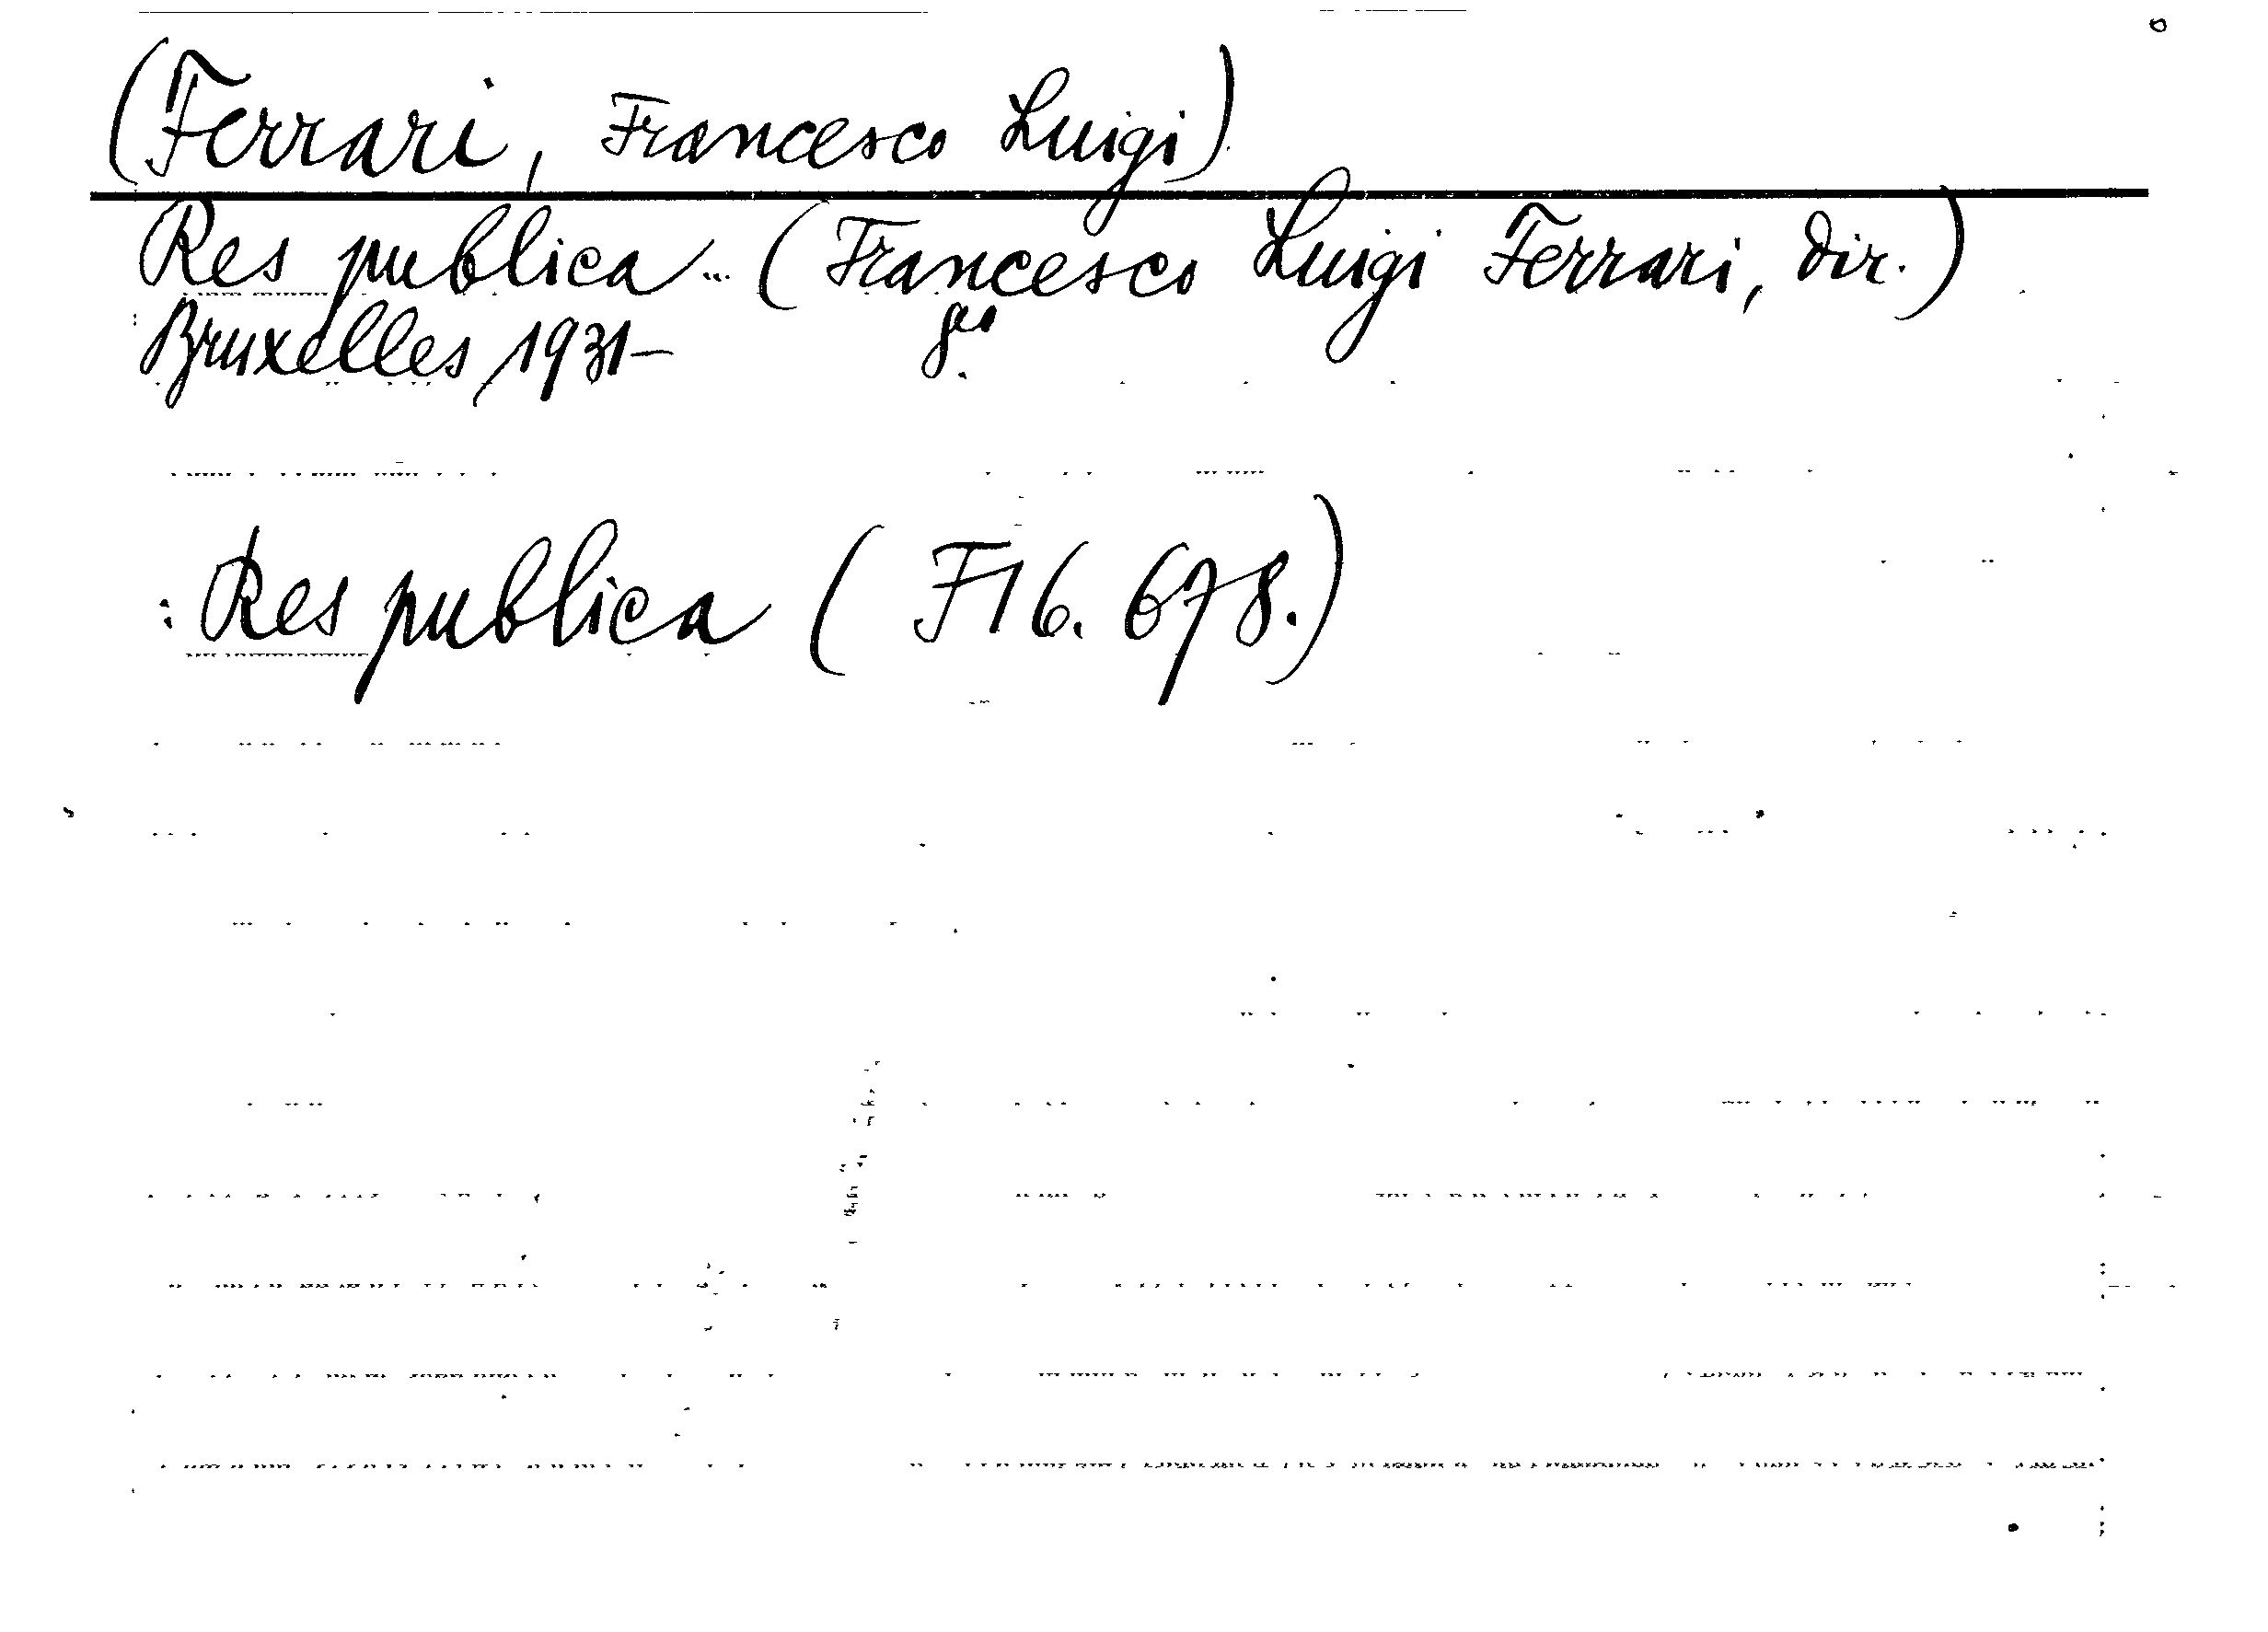 (Ferrari, Francesco Luigi)
Res publica... (Francesco Luigi Ferrari, dir.)
Bruxelles, 1931— 8°
: Res publica (F16. 678.)